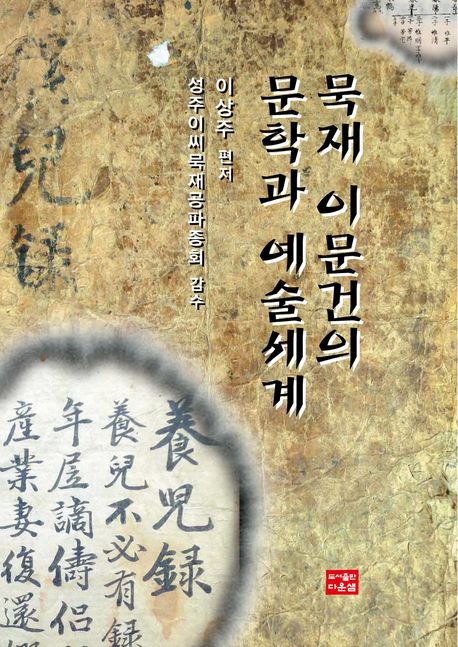 묵재 이문건의
문학과 예술세계
이상주 편저
성주이씨묵재공파종회 감수
兒錄
養兒錄
養兒不必有錄
年居謫儔侶
産業妻復還
도서출판
다운샘